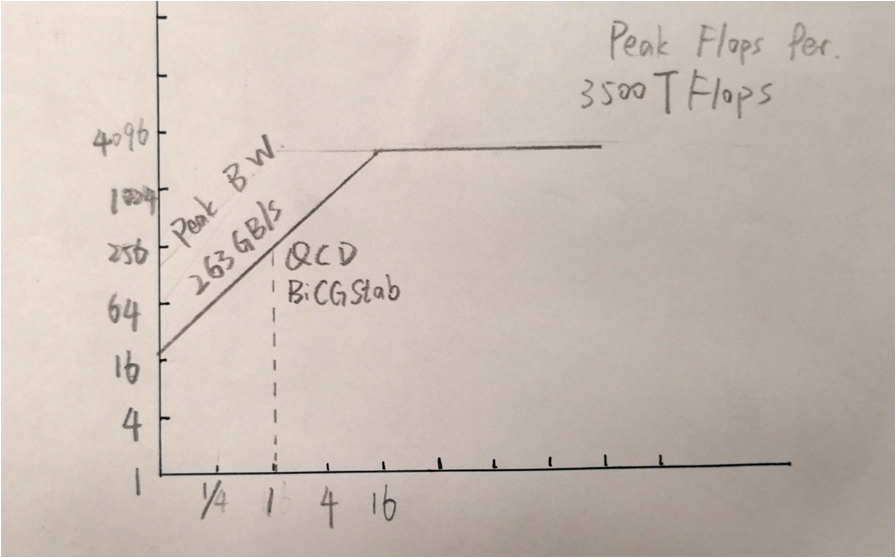 Peak Flops Per.
3500 T Flops
4096
1024
256
64
16
4
1
Peak B.W.
263 GB/s
QCD
BiCGStab
1/4 1 4 16